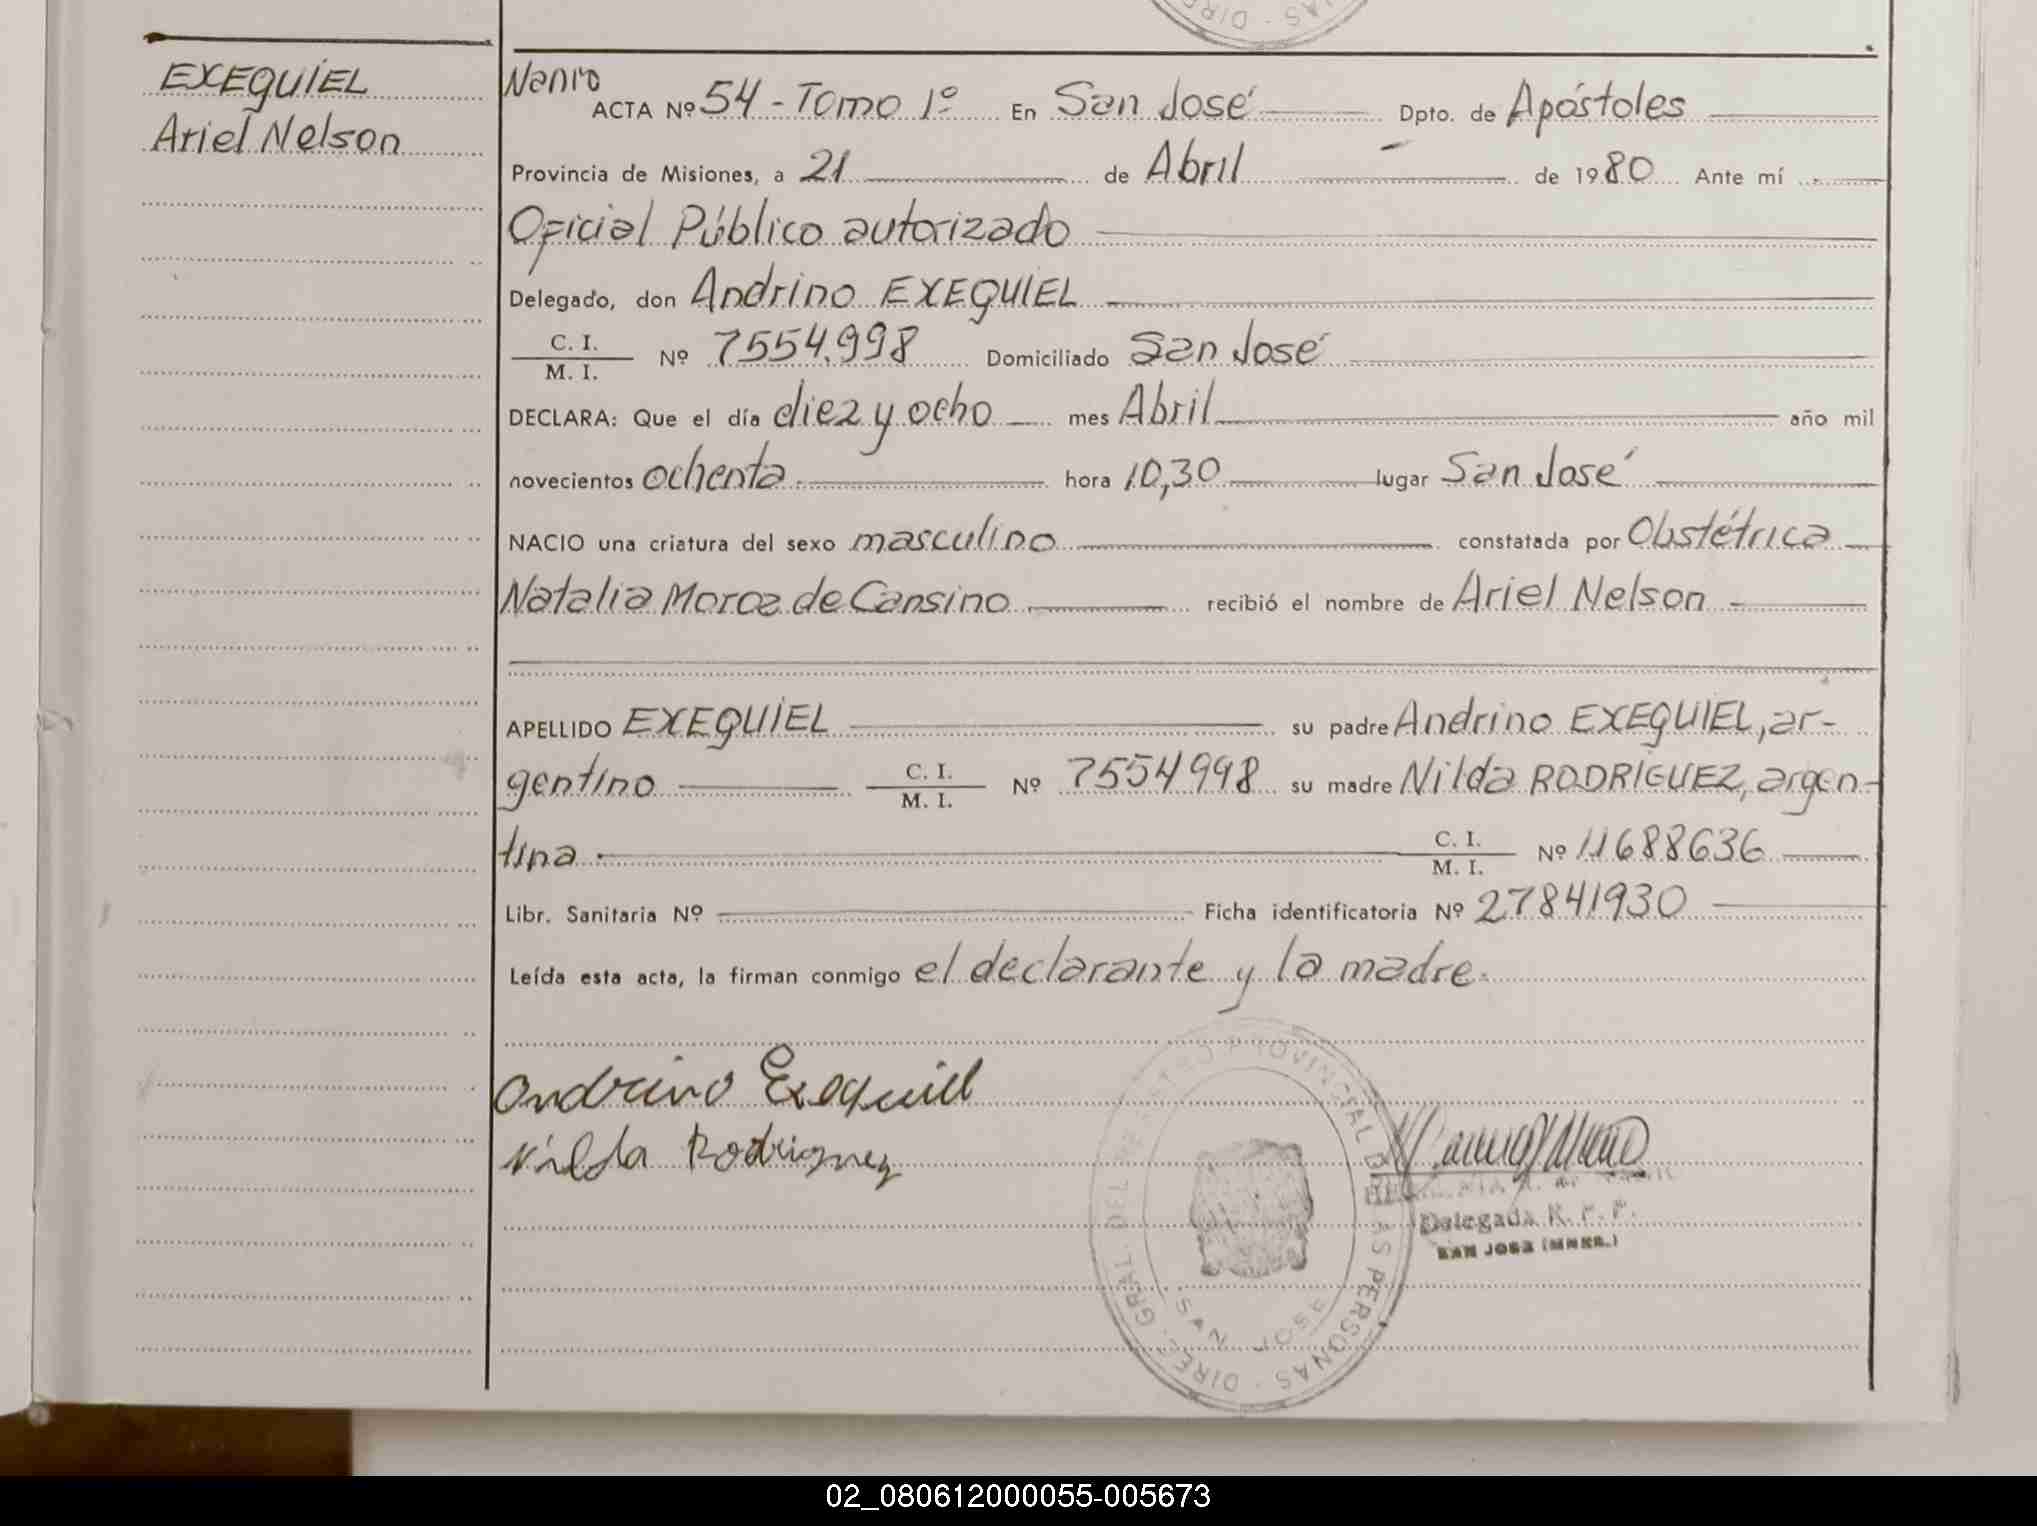 DIRE - NAS
EXEQUIEL
Ariel Nelson
ACTA Nº 54 - Tomo 1º En San José Dpto. de Apóstoles
Provincia de Misiones, a 21 de Abril de 1980 Ante mí
Oficial Público autorizado
Delegado, don Andrino EXEQUIEL
C. I.
M. I. Nº 7554.998 Domiciliado San José
DECLARA: Que el día diez y ocho mes Abril año mil
novecientos ochenta hora 10,30 lugar San José
NACIO una criatura del sexo masculino constatada por Obstétrica
Natalia Moroz de Cansino recibió el nombre de Ariel Nelson
APELLIDO EXEQUIEL su padre Andrino EXEQUIEL, ar-
gentino C. I. M. I. Nº 7554998 su madre Nilda RODRÍGUEZ, argen-
tina C. I. M. I. Nº 11688636
Libr. Sanitaria Nº Ficha identificatoria Nº 27841930
Leída esta acta, la firman conmigo el declarante y la madre.
Andrino Exequiel
Nilda Rodriguez
DIREC. GRAL. DEL REGISTRO PROVINCIAL DE LAS PERSONAS
SAN JOSE
Delegada R. P. P.
SAN JOSE (MNES.)
02_080612000055-005673